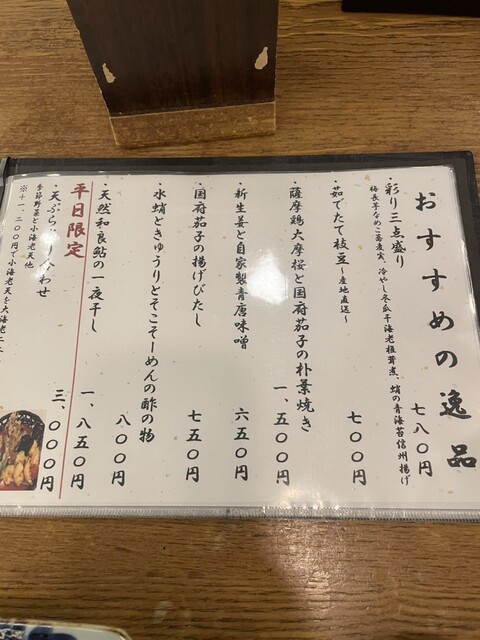 おすすめの逸品
・彩り三点盛り 七八〇円
梅長芋なめこ蕎麦実、冷やし冬瓜干海老椎茸煮、蛸の青海苔信州揚げ
・茹でたて枝豆～産地直送～ 七〇〇円
・薩摩鶏大摩桜と国府茄子の朴葉焼き 一、五〇〇円
・新生姜と自家製青唐味噌 六五〇円
・国府茄子の揚げびたし 七五〇円
・水蛸ときゅうりとそこそーめんの酢の物 八〇〇円
・天然和良鮎の一夜干し 一、八五〇円
平日限定
・天ぷら わせ 三、〇〇〇円
季節野菜と小海老天他
※十一、二〇〇円で小海老天を大海老二